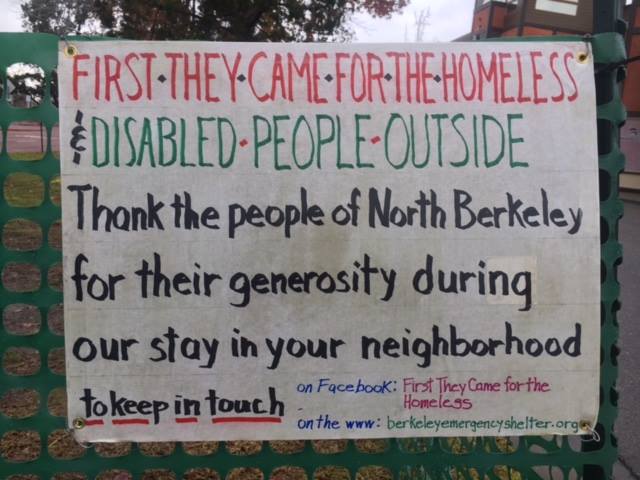 FIRST•THEY•CAME•FOR•THE•HOMELESS
& DISABLED•PEOPLE•OUTSIDE
Thank the people of North Berkeley
for their generosity during
our stay in your neighborhood
to keep in touch
on Facebook: First They Came for the
Homeless
on the www: berkeleyemergencyshelter.org